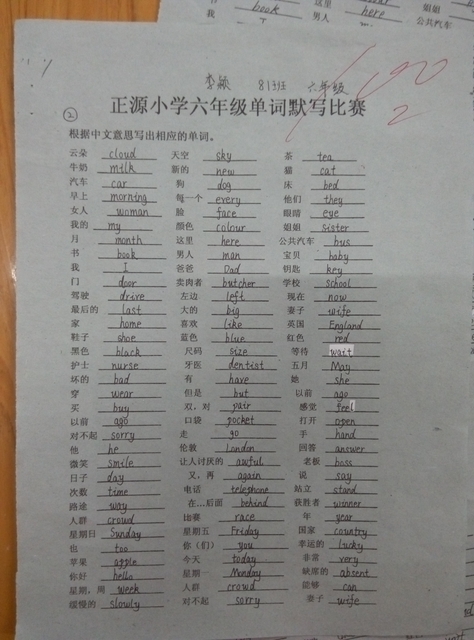 书 book 这里 here 姐姐
我 男人 公共汽车
李颖 813班 六年级
100
正源小学六年级单词默写比赛 2
②
根据中文意思写出相应的单词。
云朵 cloud 天空 sky 茶 tea
牛奶 milk 新的 new 猫 cat
汽车 car 狗 dog 床 bed
早上 morning 每一个 every 他们 they
女人 woman 脸 face 眼睛 eye
我的 my 颜色 colour 姐姐 sister
月 month 这里 here 公共汽车 bus
书 book 男人 man 宝贝 baby
我 I 爸爸 Dad 钥匙 key
门 door 卖肉者 butcher 学校 school
驾驶 drive 左边 left 现在 now
最后的 last 大的 big 妻子 wife
家 home 喜欢 like 英国 England
鞋子 shoe 蓝色 blue 红色 red
黑色 black 尺码 size 等待 wait
护士 nurse 牙医 dentist 五月 May
坏的 bad 有 have 她 she
穿 wear 但是 but 以前 ago
买 buy 双，对 pair 感觉 feel
以前 ago 口袋 pocket 打开 open
对不起 sorry 走 go 手 hand
他 he 伦敦 London 回答 answer
微笑 smile 让人讨厌的 awful 老板 boss
日子 day 又，再 again 说 say
次数 time 电话 telephone 站立 stand
路途 way 在…后面 behind 获胜者 winner
人群 crowd 比赛 race 年 year
星期日 Sunday 星期五 Friday 国家 country
也 too 你（们） you 幸运的 lucky
苹果 apple 今天 today 非常 very
你好 hello 星期一 Monday 缺席的 absent
星期，周 week 人群 crowd 能够 can
缓慢的 slowly 对不起 sorry 妻子 wife